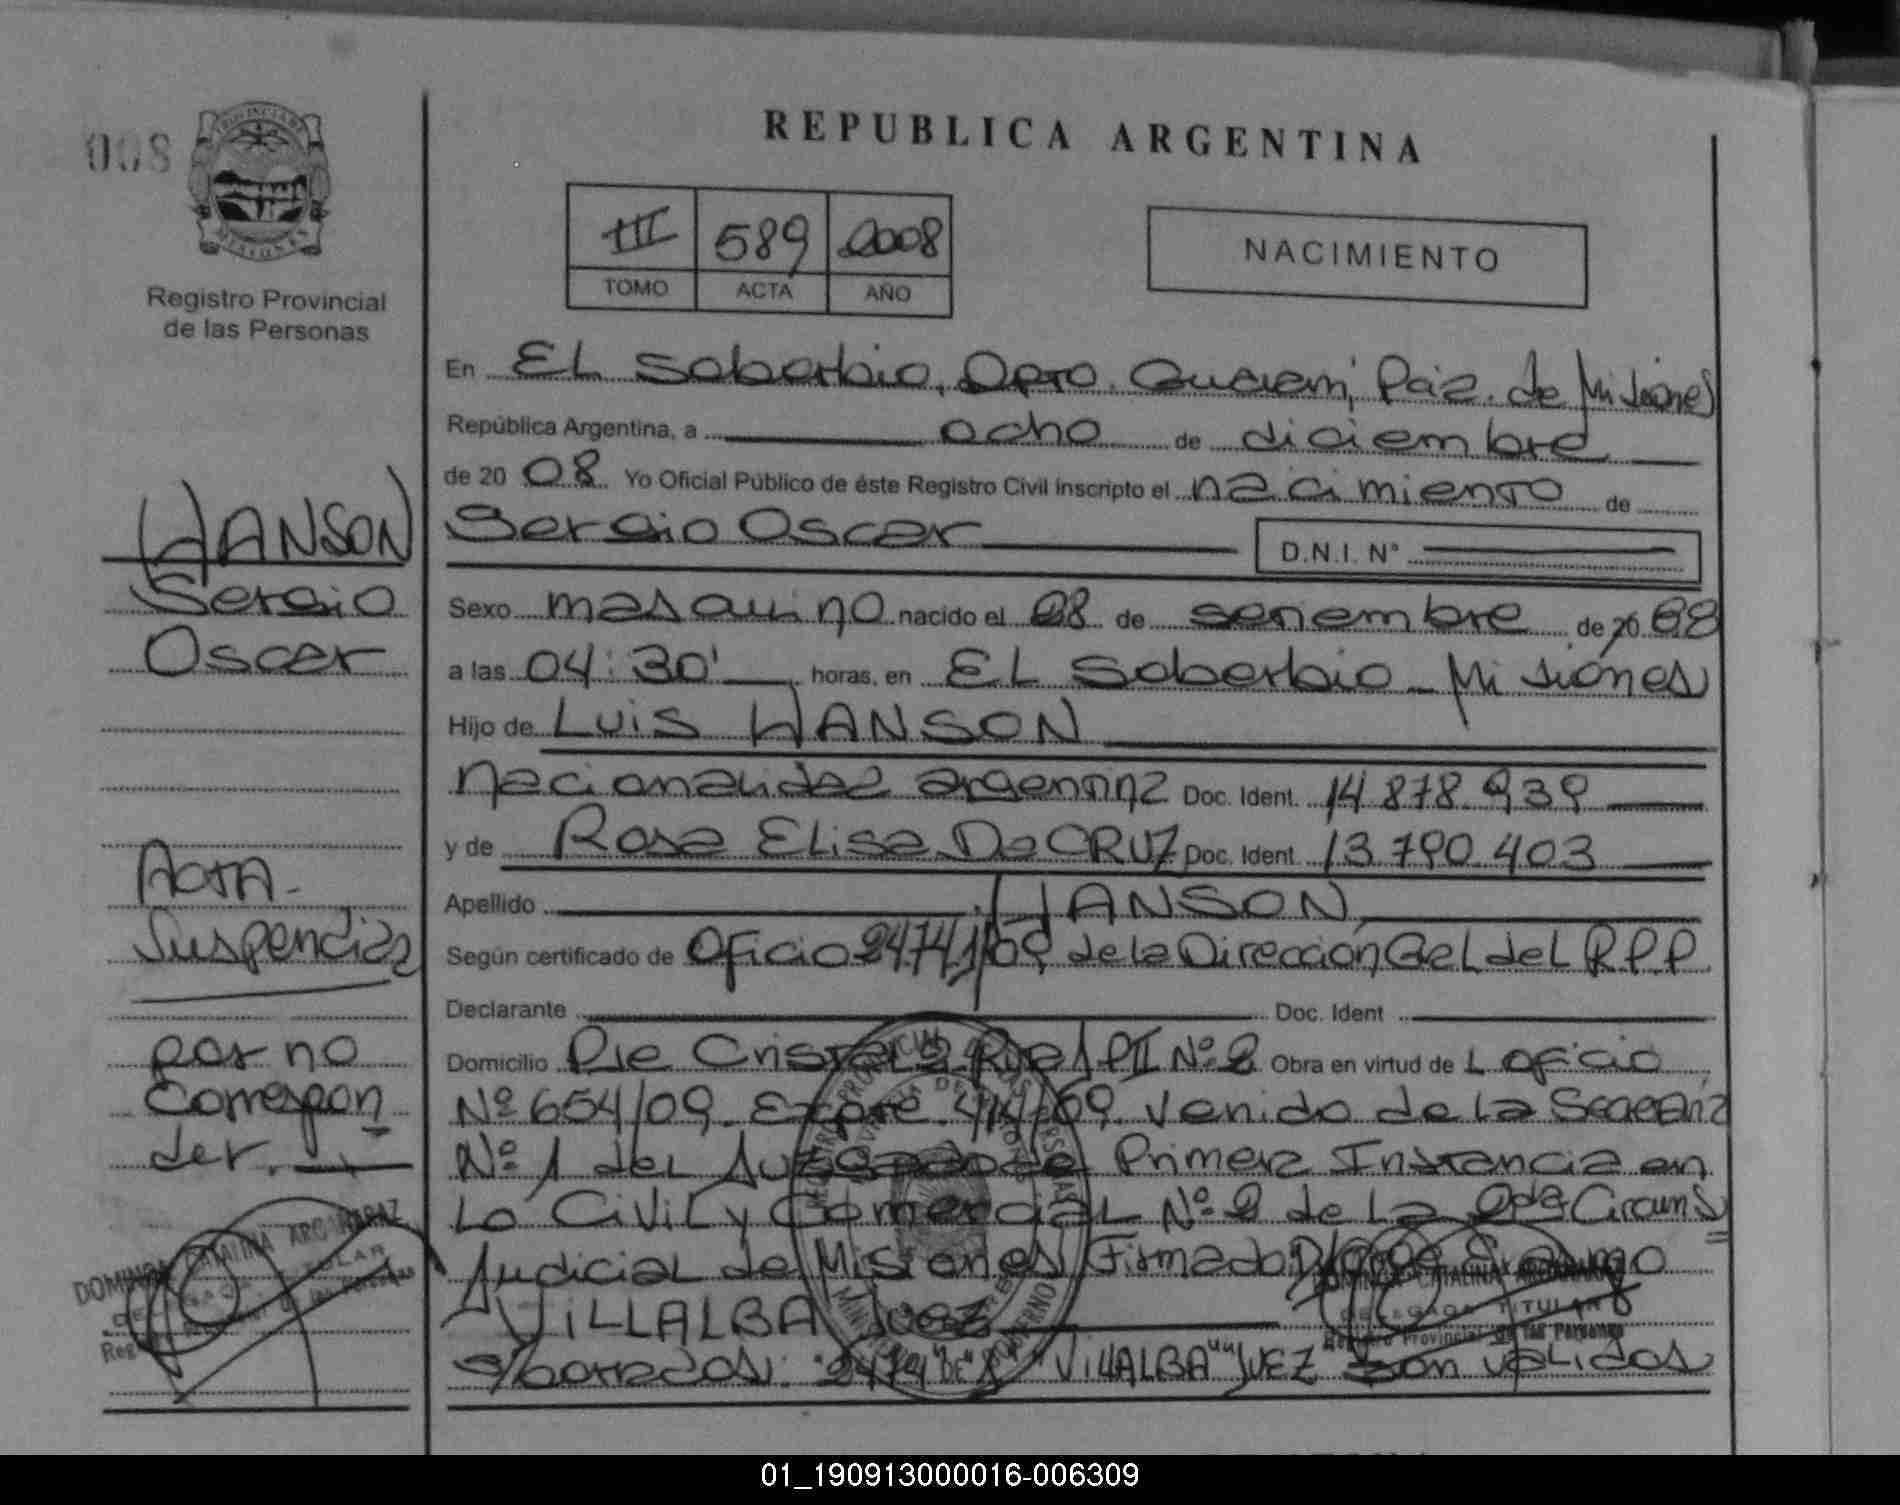 008
PROVINCIA DE
MISIONES
Registro Provincial
de las Personas
HANSON
Sergio
Oscar
ACTA -
Suspendida
por no
Correspon
der.
DOMINGA CATALINA ARGAÑARAZ
REPUBLICA ARGENTINA
III 589 2008
TOMO ACTA AÑO
NACIMIENTO
En EL Soberbio, Dpto. Guaraní, Pcia. de Misiones
República Argentina, a ocho de diciembre
de 2008 Yo Oficial Público de éste Registro Civil inscripto el nacimiento de
Sergio Oscar D.N.I. N°
Sexo masculino nacido el 08 de setiembre de 20 88
a las 04:30' horas, en EL Soberbio - Misiones
Hijo de Luis HANSON
Nacionalidad argentina Doc. Ident. 14 878.939
y de Rosa Elisa Da CRUZ Doc. Ident. 13.790.403
Apellido HANSON
Según certificado de Oficio 2474/09 de la Dirección Gel del R.P.P.
Declarante Doc. Ident
Domicilio Pje Cristal PII Nº 2 Obra en virtud de L oficio
Nº 654/09. Expte. 414/09. Venido de la Secretaria
Nº 1 del Juzgado de Primera Instancia en
Lo Civil y Comercial Nº 2 de La 2da Circuns
Judicial de Misiones Firmado Erasmo
VILLALBA Juez
DOMINGA CATALINA ARGAÑARAZ
DELEGADA TITULAR
Registro Provincial de las Personas
s/borrados: "2474" "DE" "VILLALBA" "JUEZ son validos
01_190913000016-006309